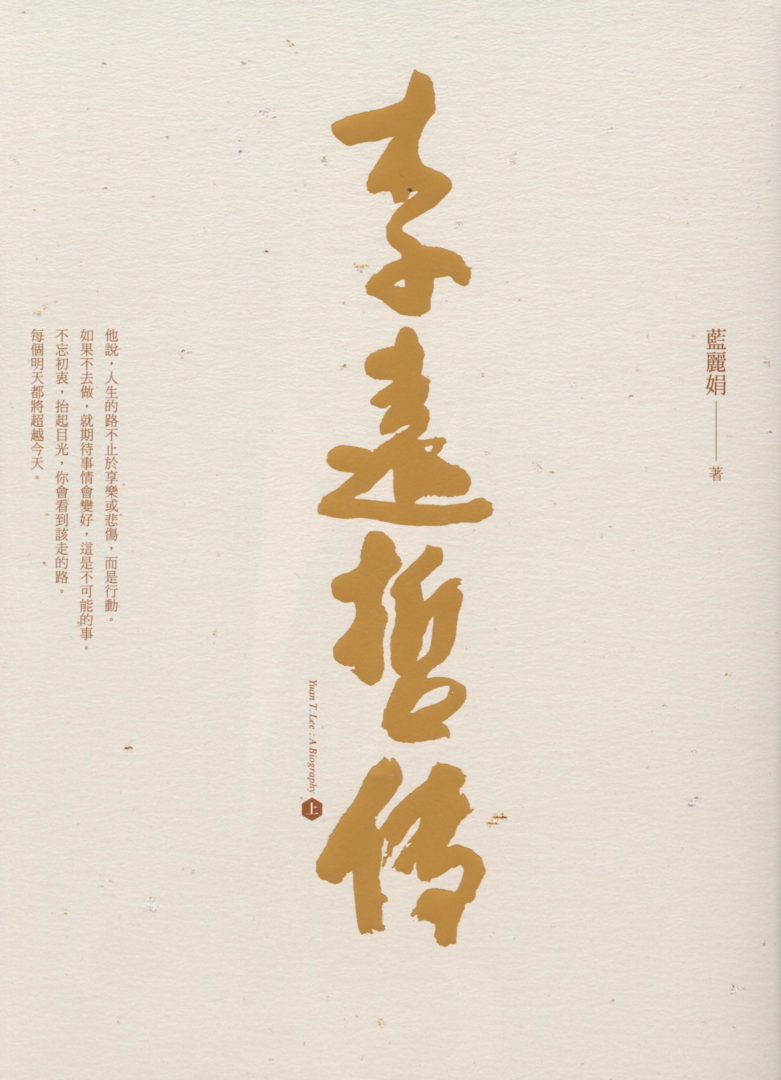 藍麗娟——著
李遠哲传
Yuan T. Lee : A Biography 上
他說，人生的路不止於享樂或悲傷，而是行動。
如果不去做，就期待事情會變好，這是不可能的事。
不忘初衷，抬起目光，你會看到該走的路。
每個明天都將超越今天。